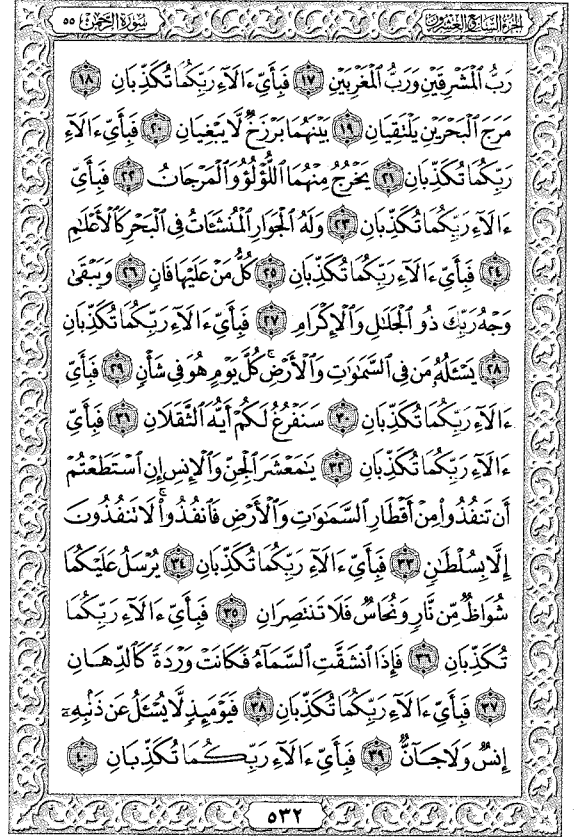 الجزء السابع والعشرون سورة الرحمن ٥٥
رَبُّ ٱلْمَشْرِقَيْنِ وَرَبُّ ٱلْمَغْرِبَيْنِ ١٧ فَبِأَىِّ ءَالَآءِ رَبِّكُمَا تُكَذِّبَانِ ١٨
مَرَجَ ٱلْبَحْرَيْنِ يَلْتَقِيَانِ ١٩ بَيْنَهُمَا بَرْزَخٌ لَّا يَبْغِيَانِ ٢٠ فَبِأَىِّ ءَالَآءِ
رَبِّكُمَا تُكَذِّبَانِ ٢١ يَخْرُجُ مِنْهُمَا ٱللُّؤْلُؤُ وَٱلْمَرْجَانُ ٢٢ فَبِأَىِّ
ءَالَآءِ رَبِّكُمَا تُكَذِّبَانِ ٢٣ وَلَهُ ٱلْجَوَارِ ٱلْمُنشَـَٔاتُ فِى ٱلْبَحْرِ كَٱلْأَعْلَٰمِ
٢٤ فَبِأَىِّ ءَالَآءِ رَبِّكُمَا تُكَذِّبَانِ ٢٥ كُلُّ مَنْ عَلَيْهَا فَانٍ ٢٦ وَيَبْقَىٰ
وَجْهُ رَبِّكَ ذُو ٱلْجَلَٰلِ وَٱلْإِكْرَامِ ٢٧ فَبِأَىِّ ءَالَآءِ رَبِّكُمَا تُكَذِّبَانِ
٢٨ يَسْـَٔلُهُۥ مَن فِى ٱلسَّمَٰوَٰتِ وَٱلْأَرْضِ ۚ كُلَّ يَوْمٍ هُوَ فِى شَأْنٍ ٢٩ فَبِأَىِّ
ءَالَآءِ رَبِّكُمَا تُكَذِّبَانِ ٣٠ سَنَفْرُغُ لَكُمْ أَيُّهَ ٱلثَّقَلَانِ ٣١ فَبِأَىِّ
ءَالَآءِ رَبِّكُمَا تُكَذِّبَانِ ٣٢ يَٰمَعْشَرَ ٱلْجِنِّ وَٱلْإِنسِ إِنِ ٱسْتَطَعْتُمْ
أَن تَنفُذُوا۟ مِنْ أَقْطَارِ ٱلسَّمَٰوَٰتِ وَٱلْأَرْضِ فَٱنفُذُوا۟ ۚ لَا تَنفُذُونَ
إِلَّا بِسُلْطَٰنٍ ٣٣ فَبِأَىِّ ءَالَآءِ رَبِّكُمَا تُكَذِّبَانِ ٣٤ يُرْسَلُ عَلَيْكُمَا
شُوَاظٌ مِّن نَّارٍ وَنُحَاسٌ فَلَا تَنتَصِرَانِ ٣٥ فَبِأَىِّ ءَالَآءِ رَبِّكُمَا
تُكَذِّبَانِ ٣٦ فَإِذَا ٱنشَقَّتِ ٱلسَّمَآءُ فَكَانَتْ وَرْدَةً كَٱلدِّهَانِ
٣٧ فَبِأَىِّ ءَالَآءِ رَبِّكُمَا تُكَذِّبَانِ ٣٨ فَيَوْمَئِذٍ لَّا يُسْـَٔلُ عَن ذَنۢبِهِۦٓ
إِنسٌ وَلَا جَآنٌّ ٣٩ فَبِأَىِّ ءَالَآءِ رَبِّكُمَا تُكَذِّبَانِ ٤٠
٥٣٢